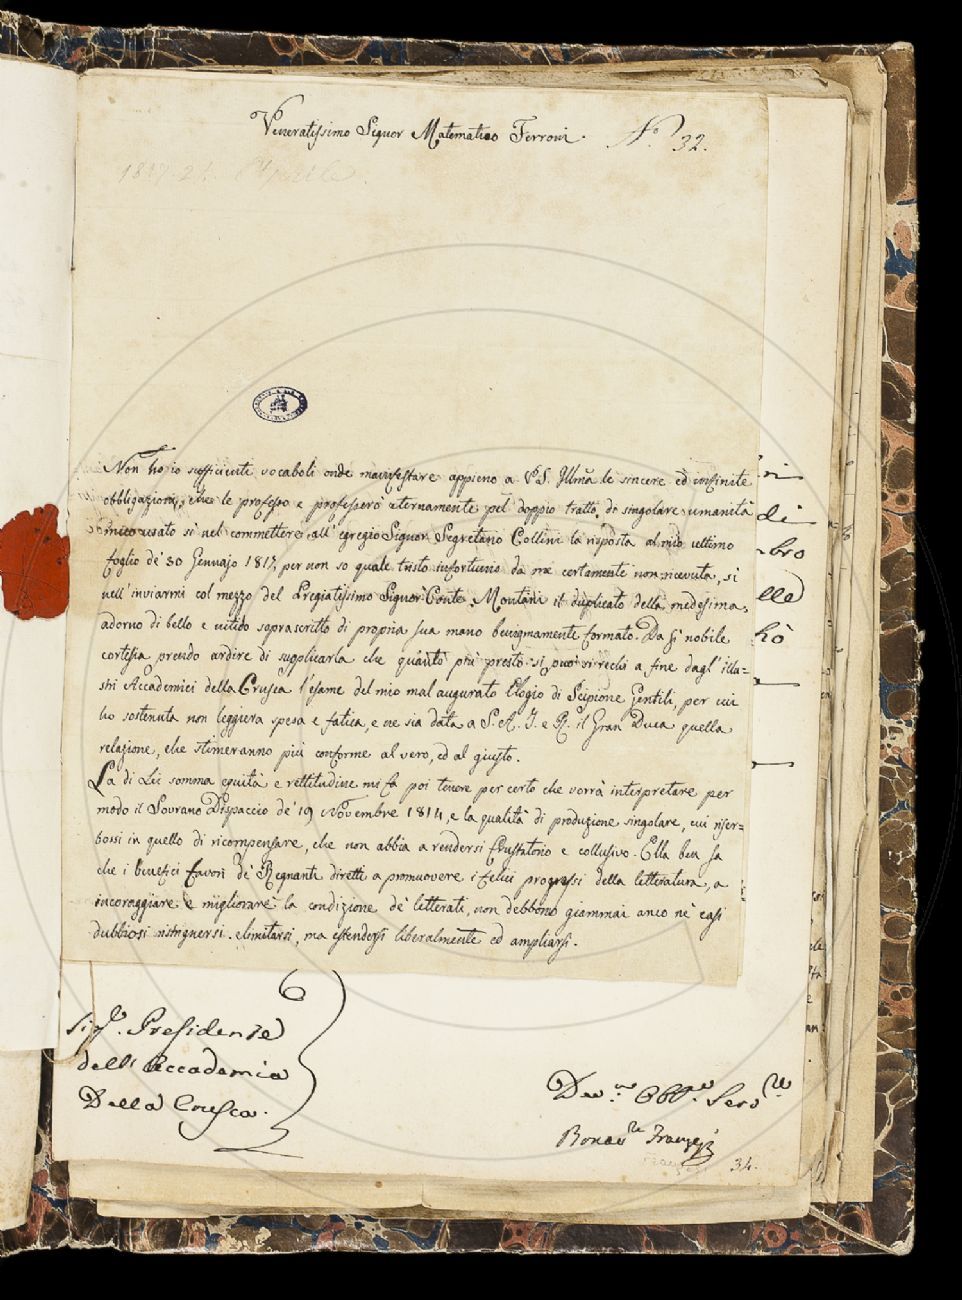 Veneratissimo Signor Matematico Ferroni. N.° 32.
1817. 21. Aprile
Non ho io sufficienti vocaboli onde manifestare appieno a V.S. Illma le sincere ed infinite
obbligazioni, che le professo e professerò eternamente pel doppio tratto di singolare umanità
meco usato sì nel commettere all' egregio Signor Segretario Collini la risposta al mio ultimo
foglio de' 30 Gennajo 1817, per non so quale tristo infortunio da me certamente non ricevuta, sì
nell' inviarmi col mezzo del Pregiatissimo Signor Conte Montani il duplicato della medesima,
adorno di bello e nitido soprascritto di propria sua mano benignamente formato. Da sì nobile
cortesia prendo ardire di supplicarla che quanto più presto si può si rechi a fine dagl' illu-
stri Accademici della Crusca l'esame del mio mal augurato Elogio di Scipione Gentili, per cui
ho sostenuta non leggiera spesa e fatica, e ne sia data a S. A. I. e R. il Gran Duca quella
relazione, che stimeranno più conforme al vero, ed al giusto.
La di Lei somma equità e rettitudine mi fa poi tenere per certo che vorrà interpretare per
modo il Sovrano Dispaccio de' 19 Novembre 1814, e la qualità di produzione singolare, cui riser-
bossi in quello di ricompensare, che non abbia a rendersi frustatorio e collusivo. Ella ben sa
che i benefici favori de' Regnanti diretti a promuovere i felici progressi della letteratura, a
incoraggiare e migliorare la condizione de' letterati, non debbono giammai anco ne' casi
dubbiosi ristrignersi e limitarsi, ma estendersi liberalmente ed ampliarsi.
Sigr. Presidente
dell' Accademia
Della Crusca.
Dev.mo Obb.mo Serv.re
Bonav.ra Franzesi
34.